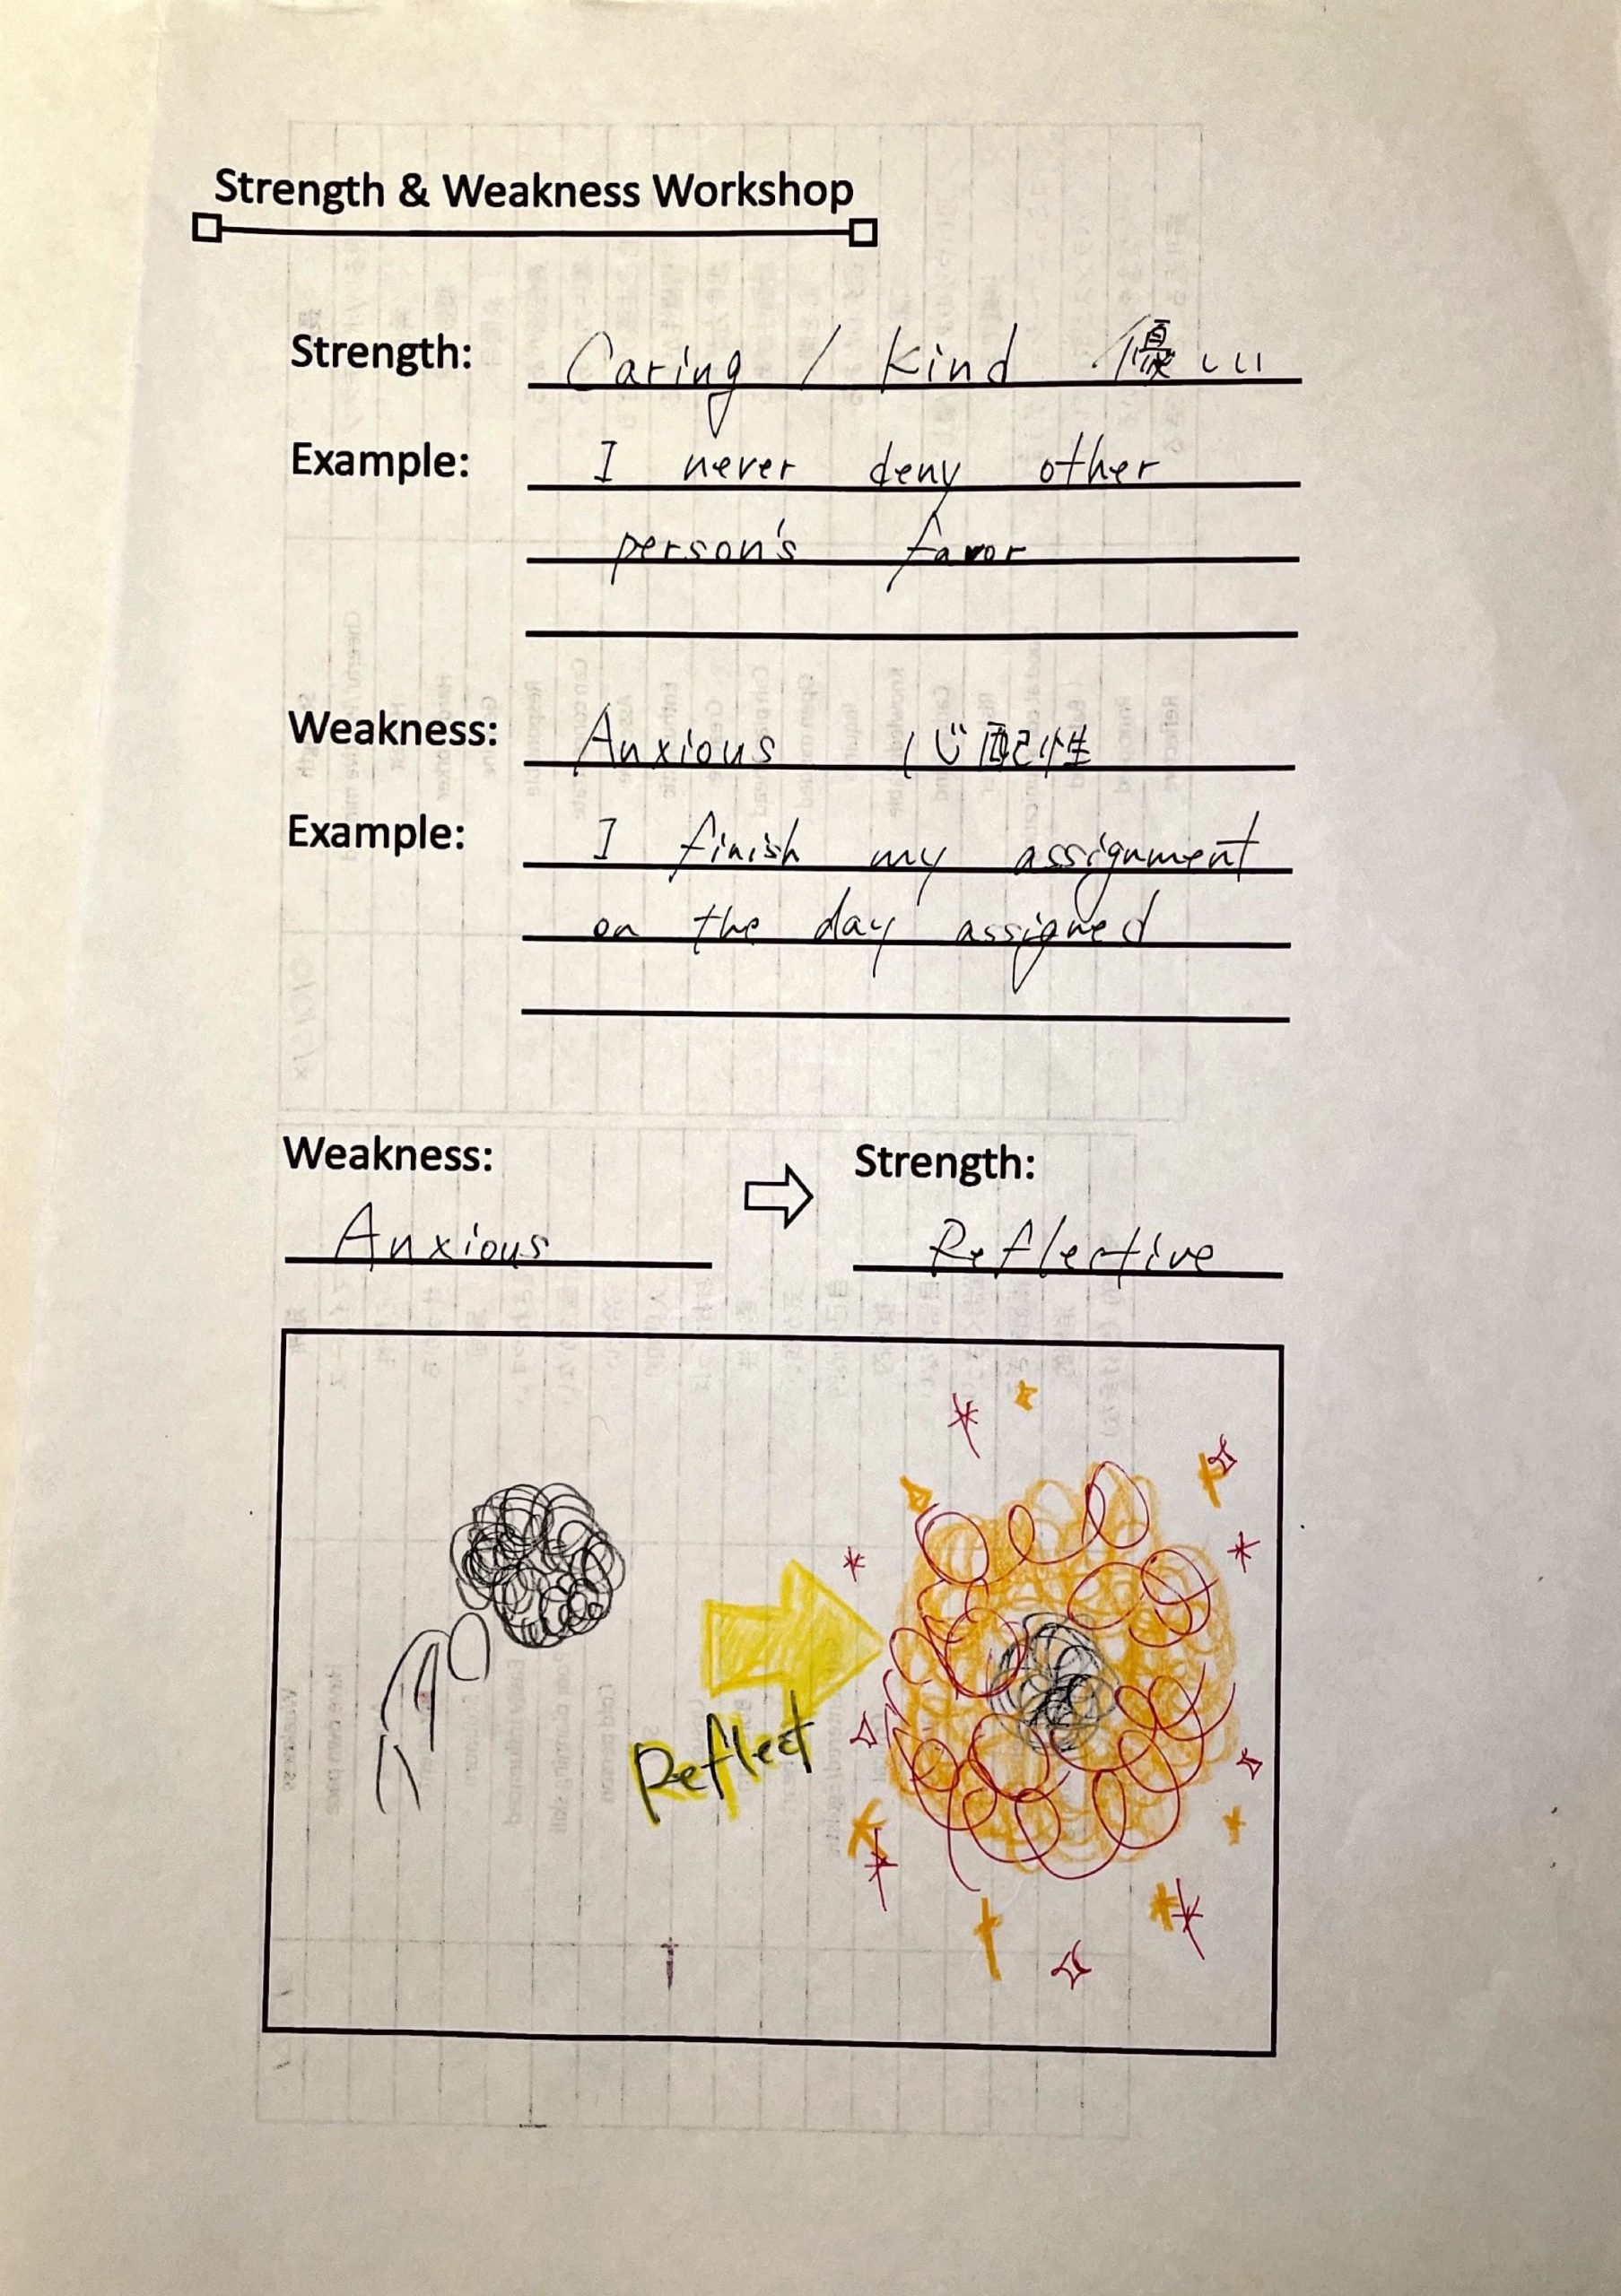 Strength & Weakness Workshop
Strength: Caring / Kind 優しい
Example: I never deny other
person's favor
Weakness: Anxious 心配性
Example: I finish my assignment
on the day assigned
Weakness: Strength:
Anxious Reflective
Reflect